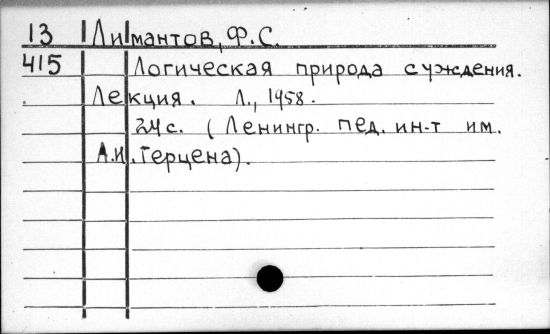 13 Лимантов, Ф.С.
415 Логическая природа суждения.
Лекция. Л., 1958.
24 с. (Ленингр. пед. ин-т им.
А.И. Герцена).